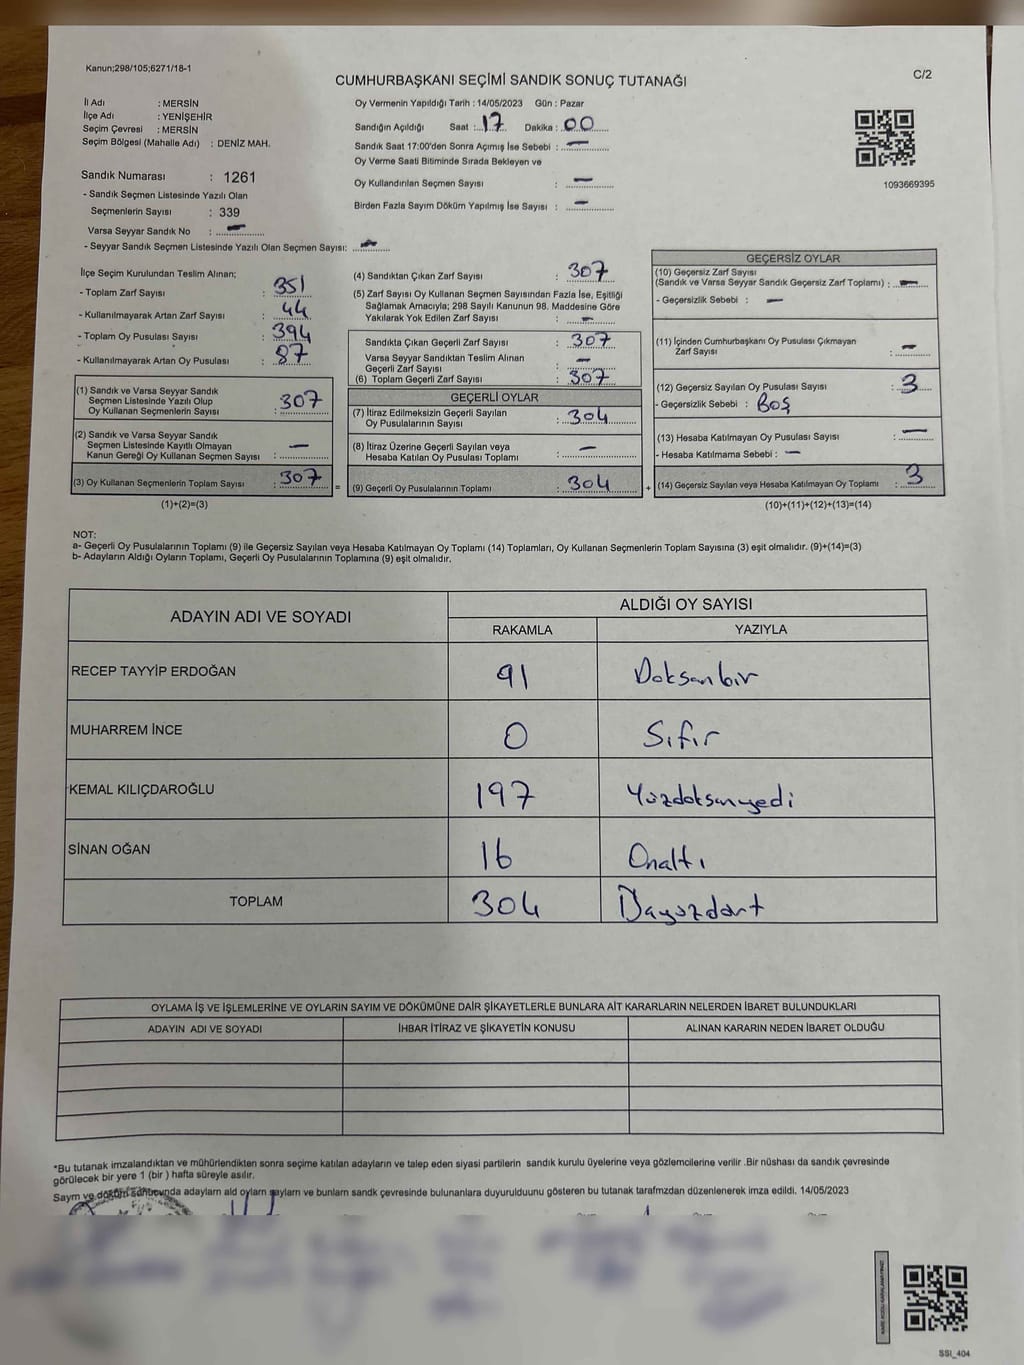 Kanun;298/105;6271/18-1
C/2
CUMHURBAŞKANI SEÇİMİ SANDIK SONUÇ TUTANAĞI
İl Adı : MERSİN
İlçe Adı : YENİŞEHİR
Seçim Çevresi : MERSİN
Seçim Bölgesi (Mahalle Adı) : DENİZ MAH.
Sandık Numarası : 1261
- Sandık Seçmen Listesinde Yazılı Olan
Seçmenlerin Sayısı : 339
Varsa Seyyar Sandık No : —
- Seyyar Sandık Seçmen Listesinde Yazılı Olan Seçmen Sayısı: —
Oy Vermenin Yapıldığı Tarih : 14/05/2023 Gün : Pazar
Sandığın Açıldığı Saat : 17 Dakika : 00
Sandık Saat 17:00'den Sonra Açımış İse Sebebi : —
Oy Verme Saati Bitiminde Sırada Bekleyen ve
Oy Kullandırılan Seçmen Sayısı : —
Birden Fazla Sayım Döküm Yapılmış İse Sayısı : —
1093669395
İlçe Seçim Kurulundan Teslim Alınan;
- Toplam Zarf Sayısı : 351
- Kullanılmayarak Artan Zarf Sayısı : 44
- Toplam Oy Pusulası Sayısı : 394
- Kullanılmayarak Artan Oy Pusulası : 87
(1) Sandık ve Varsa Seyyar Sandık
Seçmen Listesinde Yazılı Olup
Oy Kullanan Seçmenlerin Sayısı : 307
(2) Sandık ve Varsa Seyyar Sandık
Seçmen Listesinde Kayıtlı Olmayan
Kanun Gereği Oy Kullanan Seçmen Sayısı : —
(3) Oy Kullanan Seçmenlerin Toplam Sayısı : 307
(1)+(2)=(3)
(4) Sandıktan Çıkan Zarf Sayısı : 307
(5) Zarf Sayısı Oy Kullanan Seçmen Sayısından Fazla İse, Eşitliği
Sağlamak Amacıyla; 298 Sayılı Kanunun 98. Maddesine Göre
Yakılarak Yok Edilen Zarf Sayısı : —
Sandıkta Çıkan Geçerli Zarf Sayısı : 307
Varsa Seyyar Sandıktan Teslim Alınan
Geçerli Zarf Sayısı : —
(6) Toplam Geçerli Zarf Sayısı : 307
GEÇERLİ OYLAR
(7) İtiraz Edilmeksizin Geçerli Sayılan
Oy Pusulalarının Sayısı : 304
(8) İtiraz Üzerine Geçerli Sayılan veya
Hesaba Katılan Oy Pusulası Toplamı : —
= (9) Geçerli Oy Pusulalarının Toplamı : 304
GEÇERSİZ OYLAR
(10) Geçersiz Zarf Sayısı
(Sandık ve Varsa Seyyar Sandık Geçersiz Zarf Toplamı) : —
- Geçersizlik Sebebi : —
(11) İçinden Cumhurbaşkanı Oy Pusulası Çıkmayan
Zarf Sayısı : —
(12) Geçersiz Sayılan Oy Pusulası Sayısı : 3
- Geçersizlik Sebebi : Boş
(13) Hesaba Katılmayan Oy Pusulası Sayısı : —
- Hesaba Katılmama Sebebi : —
+ (14) Geçersiz Sayılan veya Hesaba Katılmayan Oy Toplamı : 3
(10)+(11)+(12)+(13)=(14)
NOT:
a- Geçerli Oy Pusulalarının Toplamı (9) ile Geçersiz Sayılan veya Hesaba Katılmayan Oy Toplamı (14) Toplamları, Oy Kullanan Seçmenlerin Toplam Sayısına (3) eşit olmalıdır. (9)+(14)=(3)
b- Adayların Aldığı Oyların Toplamı, Geçerli Oy Pusulalarının Toplamına (9) eşit olmalıdır.
ADAYIN ADI VE SOYADI
ALDIĞI OY SAYISI
RAKAMLA YAZIYLA
RECEP TAYYİP ERDOĞAN 91 Doksanbir
MUHARREM İNCE 0 Sıfır
KEMAL KILIÇDAROĞLU 197 Yüzdoksanyedi
SİNAN OĞAN 16 Onaltı
TOPLAM 304
OYLAMA İŞ VE İŞLEMLERİNE VE OYLARIN SAYIM VE DÖKÜMÜNE DAİR ŞİKAYETLERLE BUNLARA AİT KARARLARIN NELERDEN İBARET BULUNDUKLARI
ADAYIN ADI VE SOYADI İHBAR İTİRAZ VE ŞİKAYETİN KONUSU ALINAN KARARIN NEDEN İBARET OLDUĞU
*Bu tutanak imzalandıktan ve mühürlendikten sonra seçime katılan adayların ve talep eden siyasi partilerin sandık kurulu üyelerine veya gözlemcilerine verilir .Bir nüshası da sandık çevresinde
görülecek bir yere 1 (bir ) hafta süreyle asılır.
Sayım ve döküm sonucunda adayların ald oyların sayıların ve bunların sandk çevresinde bulunanlara duyurulduunu gösteren bu tutanak tarafmzdan düzenlenerek imza edildi. 14/05/2023
SSI_404